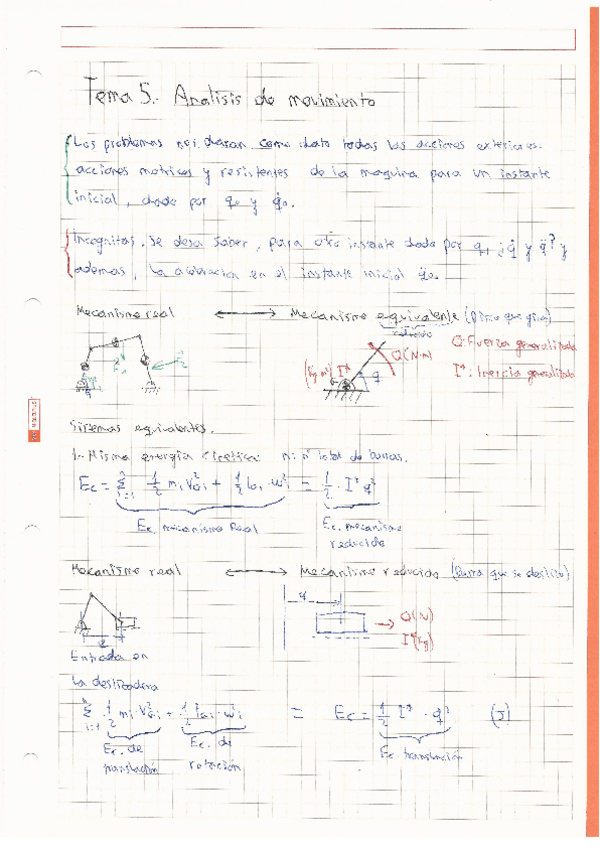 Tema 5. Analisis de movimiento
Los problemas nos daran como dato todas las acciones exteriores.
acciones motrices y resistentes de la maquina para un instante
inicial, dado por q₀ y q̇₀.
Incognitas, Se desa saber, para otro instante dado por q₁, ¿q̇ y q̈? y
ademas, la aceleracion en el instante inicial q̈₀.
Mecanismo real ⟷ Mecanismo equivalente (Barra que gira)
reducido
Q: Fuerza generalizada
Q(N·m)
(kg·m²) I*
q
I*: Inercia generalizada
Sistemas equivalentes.
1- Misma energia cinetica n: nº total de barras.
Ec = Σ 1/2 mᵢ V²Gᵢ + 1/2 IGᵢ · ωᵢ² = 1/2 · I* q̇²
i=1
Ec mecanismo Real
Ec. mecanismo
reducido
Mecanismo real ⟷ Mecanismo reducido (Barra que se desliza)
q
Q(N)
I*(kg)
Entrada en
la deslizadera
Σ 1/2 mᵢ · V²Gᵢ + 1/2 IGᵢ · ωᵢ² = Ec = 1/2 I* · q̇² (J)
i=1
Ec. de
translación
Ec. de
rotación
Ec translación